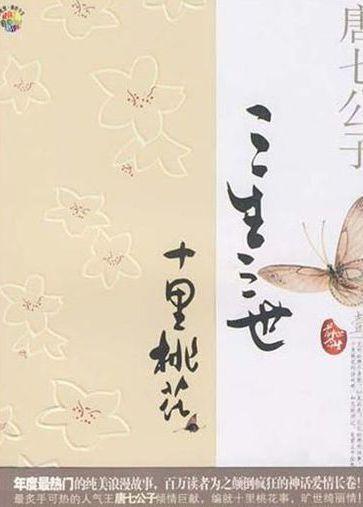 唐七公子
著
三生三世
十里桃花
年度最热门的纯美浪漫故事，百万读者为之颠倒疯狂的神话爱情长卷！
最炙手可热的人气王唐七公子倾情巨献，编就十里桃花事，旷世绮丽情！